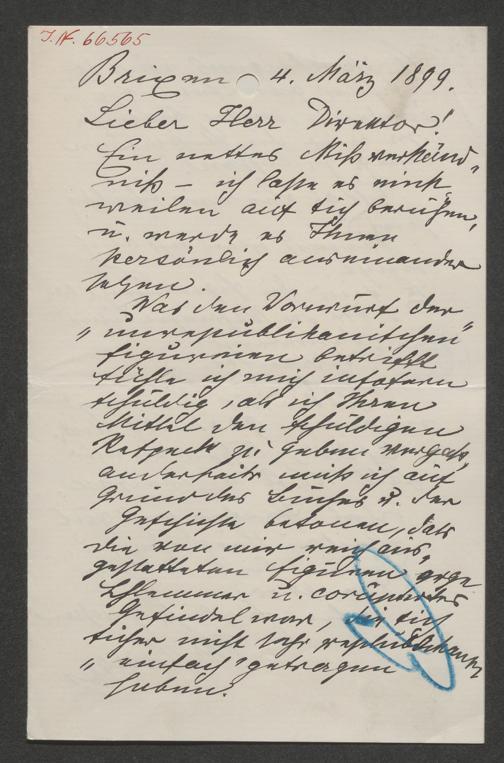 J.N. 66565
Brixen 4. März 1899.
Lieber Herr Direktor!
Ein nettes Mißverständ-
niß – ich lasse es einst-
weilen auf sich beruhen,
u. werde es Ihnen
persönlich auseinander
setzen.
Was den Vorwurf der
„unrepublikanischen"
Figurinen betrifft
fühle ich mich insofern
schuldig, als ich Ihren
Mittel den schuldigen
Respeckt zu geben vergaß,
anderseits muß ich auf
Grund des Buches u. der
Geschichte betonen, daß
die von mir reich aus-
gestatteten Figuren
Schlemmer u.
Gesindel war, die sich
sicher nicht sehr republikanisch
„einfach" getragen
haben.